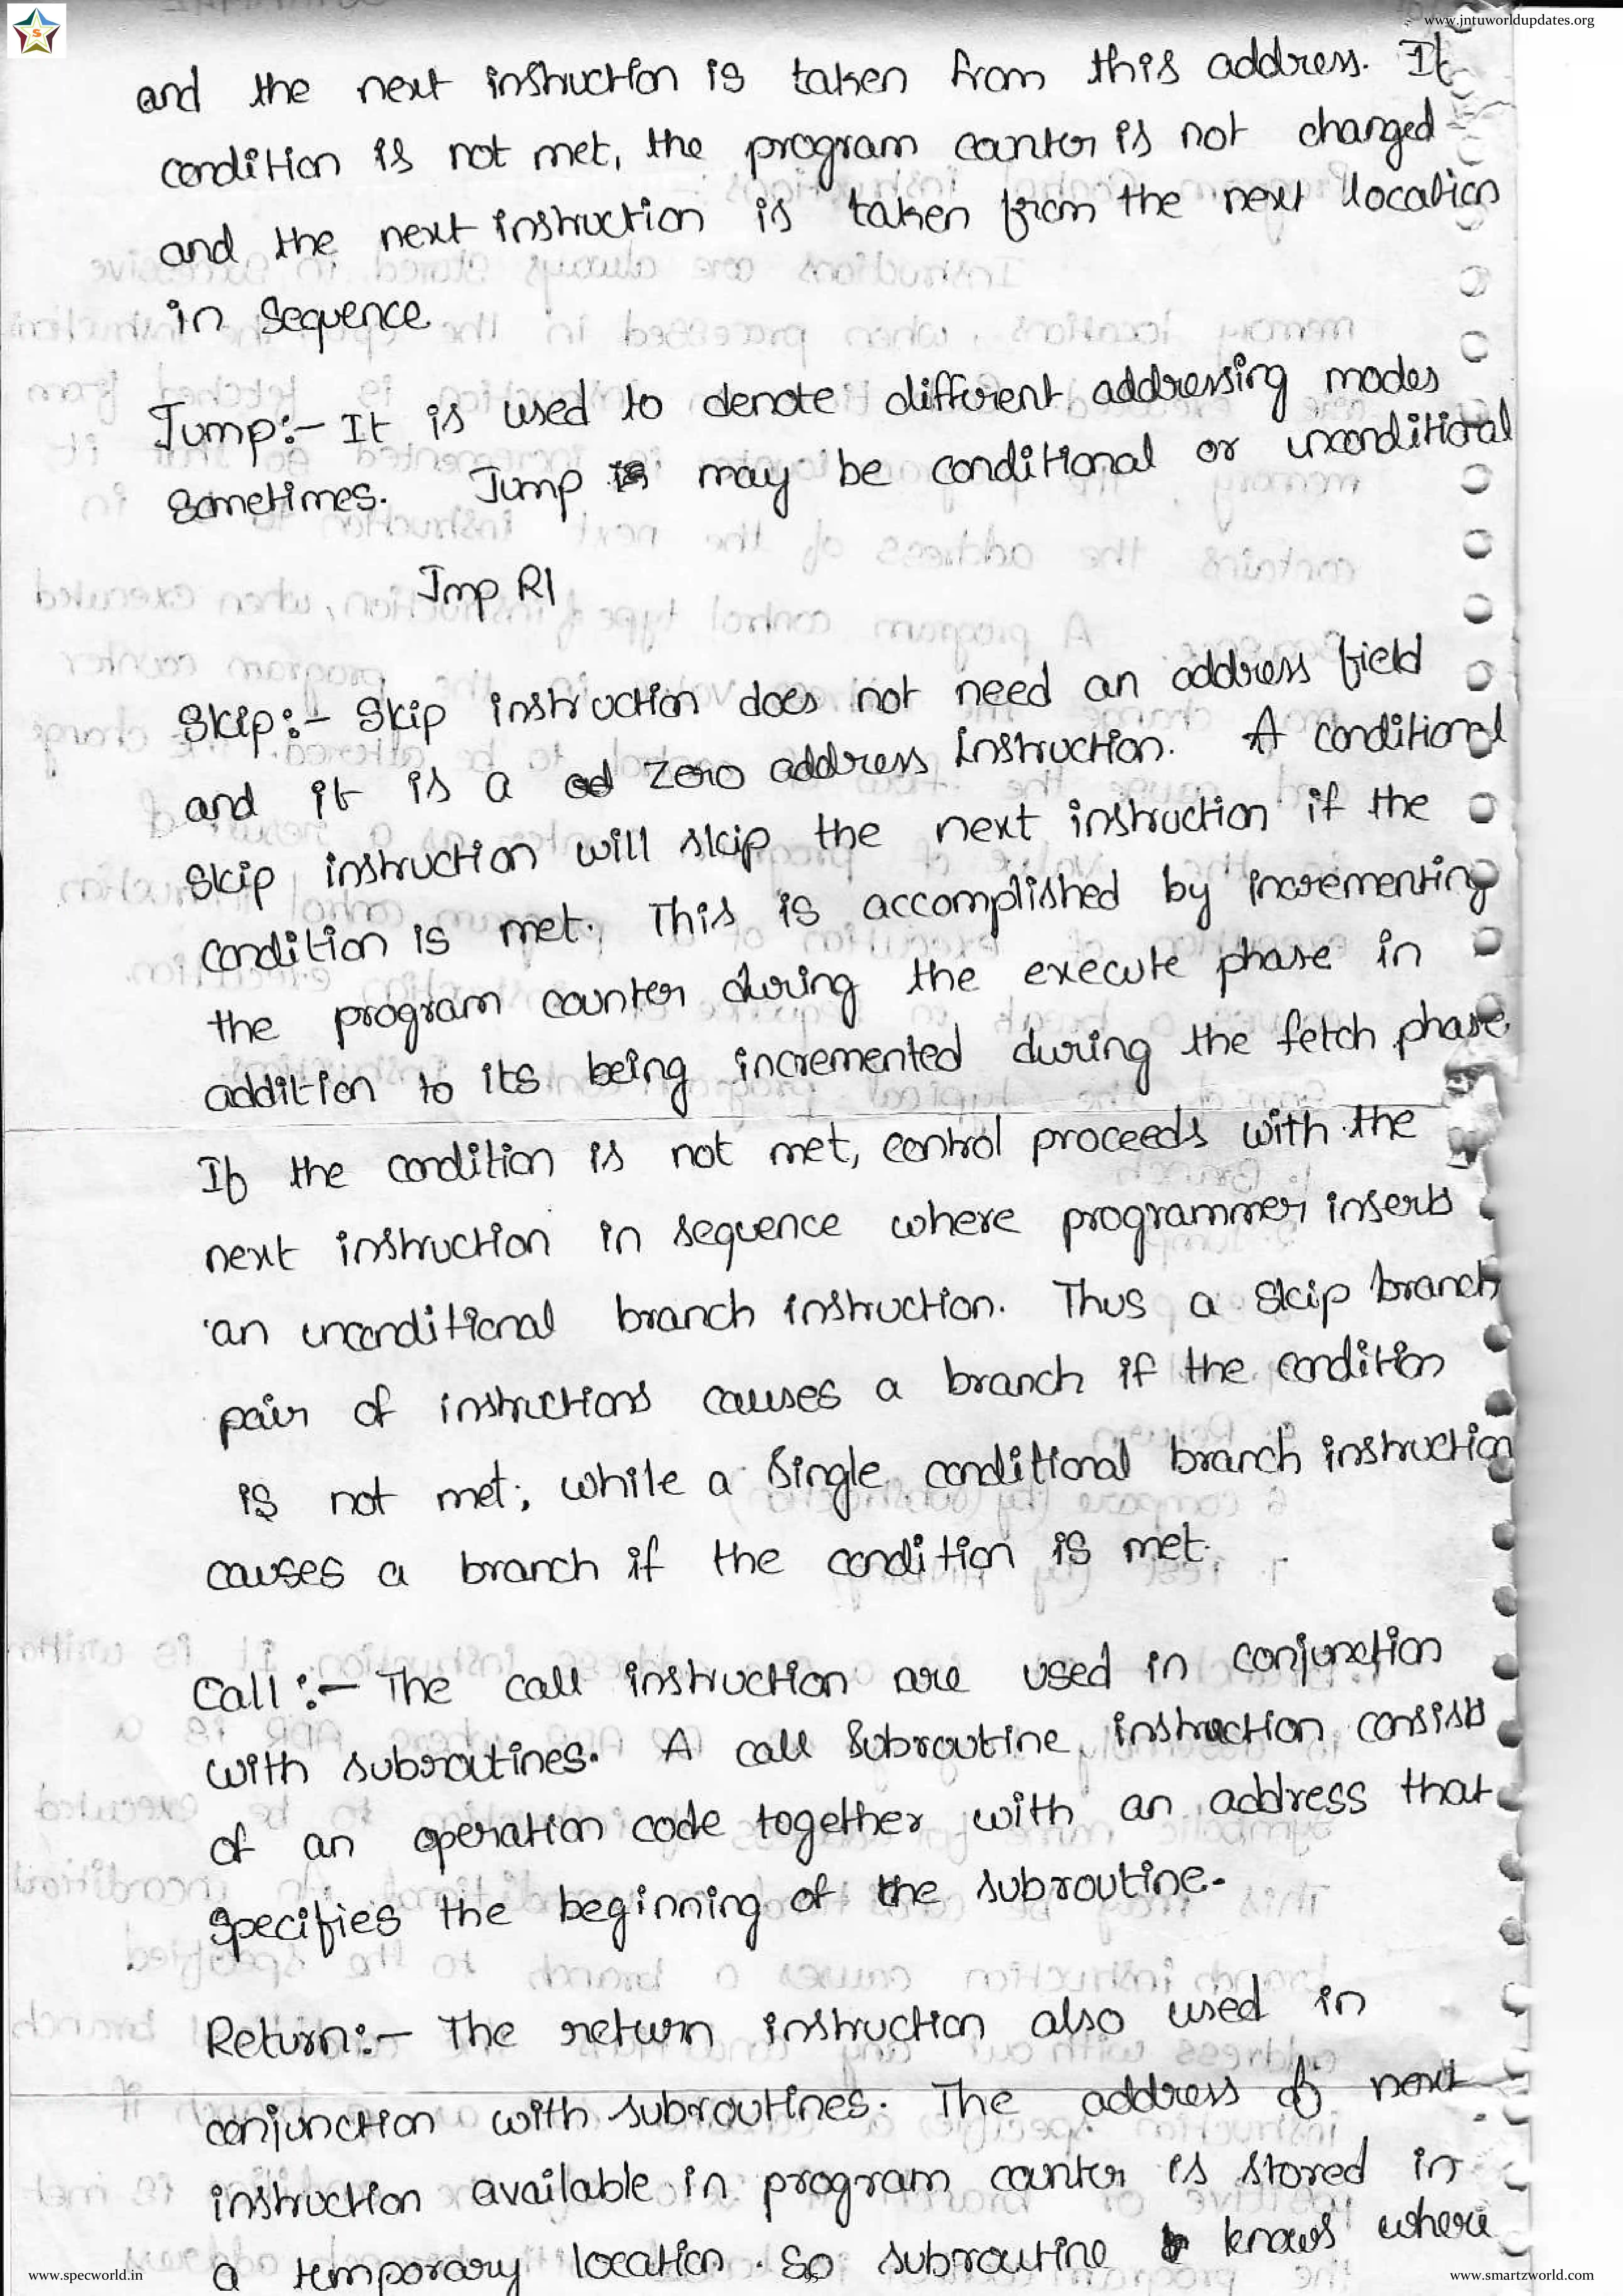 www.jntuworldupdates.org
S
and the next instruction is taken from this address. If
condition is not met, the program counter is not changed
and the next instruction is taken from the next location
in sequence
Jump:- It is used to denote different addressing modes
sometimes. Jump may be conditional or unconditional
Jmp R1
Skip:- Skip instruction does not need an address field
and it is a zero address instruction. A conditional
skip instruction will skip the next instruction if the
condition is met. This is accomplished by incrementing
the program counter during the execute phase in
addition to its being incremented during the fetch phase
If the condition is not met, control proceeds with the
next instruction in sequence where programmer inserts
an unconditional branch instruction. Thus a skip branch
pair of instructions causes a branch if the condition
is not met, while a single conditional branch instruction
causes a branch if the condition is met.
Call:- The call instruction are used in conjunction
with subroutines. A call subroutine instruction consists
of an operation code together with an address that
specifies the beginning of the subroutine.
Return:- The return instruction also used in
conjunction with subroutines. The address of next
instruction available in program counter is stored in
a temporary location. So subroutine knows where
www.specworld.in
www.smartzworld.com